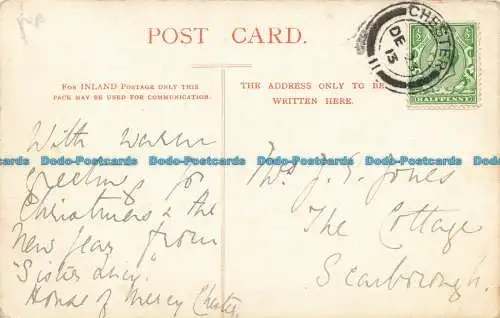 POST CARD.
CHESTER
DE 23
13
11
HALFPENNY
FOR INLAND POSTAGE ONLY THIS
PACE MAY BE USED FOR COMMUNICATION.
THE ADDRESS ONLY TO BE
WRITTEN HERE.
With warm
greetings for
Christmas & the
New Year from
"Sister Lucy.
House of Mercy Chester.
J. E. Jones
The Cottage
Scarborough.
Dodo-Postcards Dodo-Postcards Dodo-Postcards Dodo-Postcards Dodo-Postcards